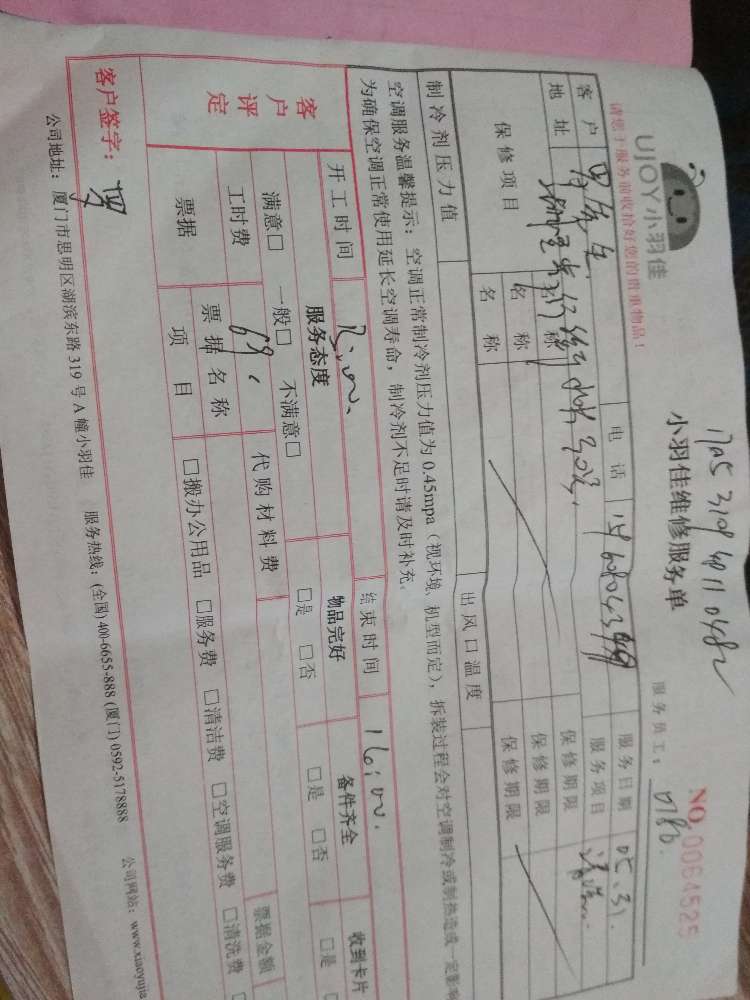 UJOY小羽佳
请您于服务前收拾好您的贵重物品！
1705 3109 4011 0482
小羽佳维修服务单
NO. 0064525
服务员工： 0180
客户 电话 服务日期 05.31.
地址 服务项目 清洗
保修项目 名称 保修期限
名称 保修期限
名称 保修期限
制冷剂压力值 出风口温度
空调服务温馨提示：空调正常制冷剂压力值为 0.45mpa（视环境、机型而定），拆装过程会对空调制冷或制热造成一定影响
为确保空调正常使用延长空调寿命，制冷剂不足时请及时补充。
开工时间 结束时间 16:00.
客户评定 服务态度 物品完好 备件齐全 收到卡片
满意□ 一般□ 不满意□ □是 □否 □是 □否 □是
工时费 69. 代购材料费 票据金额
票据 票据名称
项目 □搬办公用品 □服务费 □清洁费 □空调服务费 □清洗费
客户签字： 罗
公司地址：厦门市思明区湖滨东路 319 号 A 幢小羽佳 服务热线：(全国) 400-6655-888 (厦门) 0592-5178888 公司网站：www.xiaoyujia